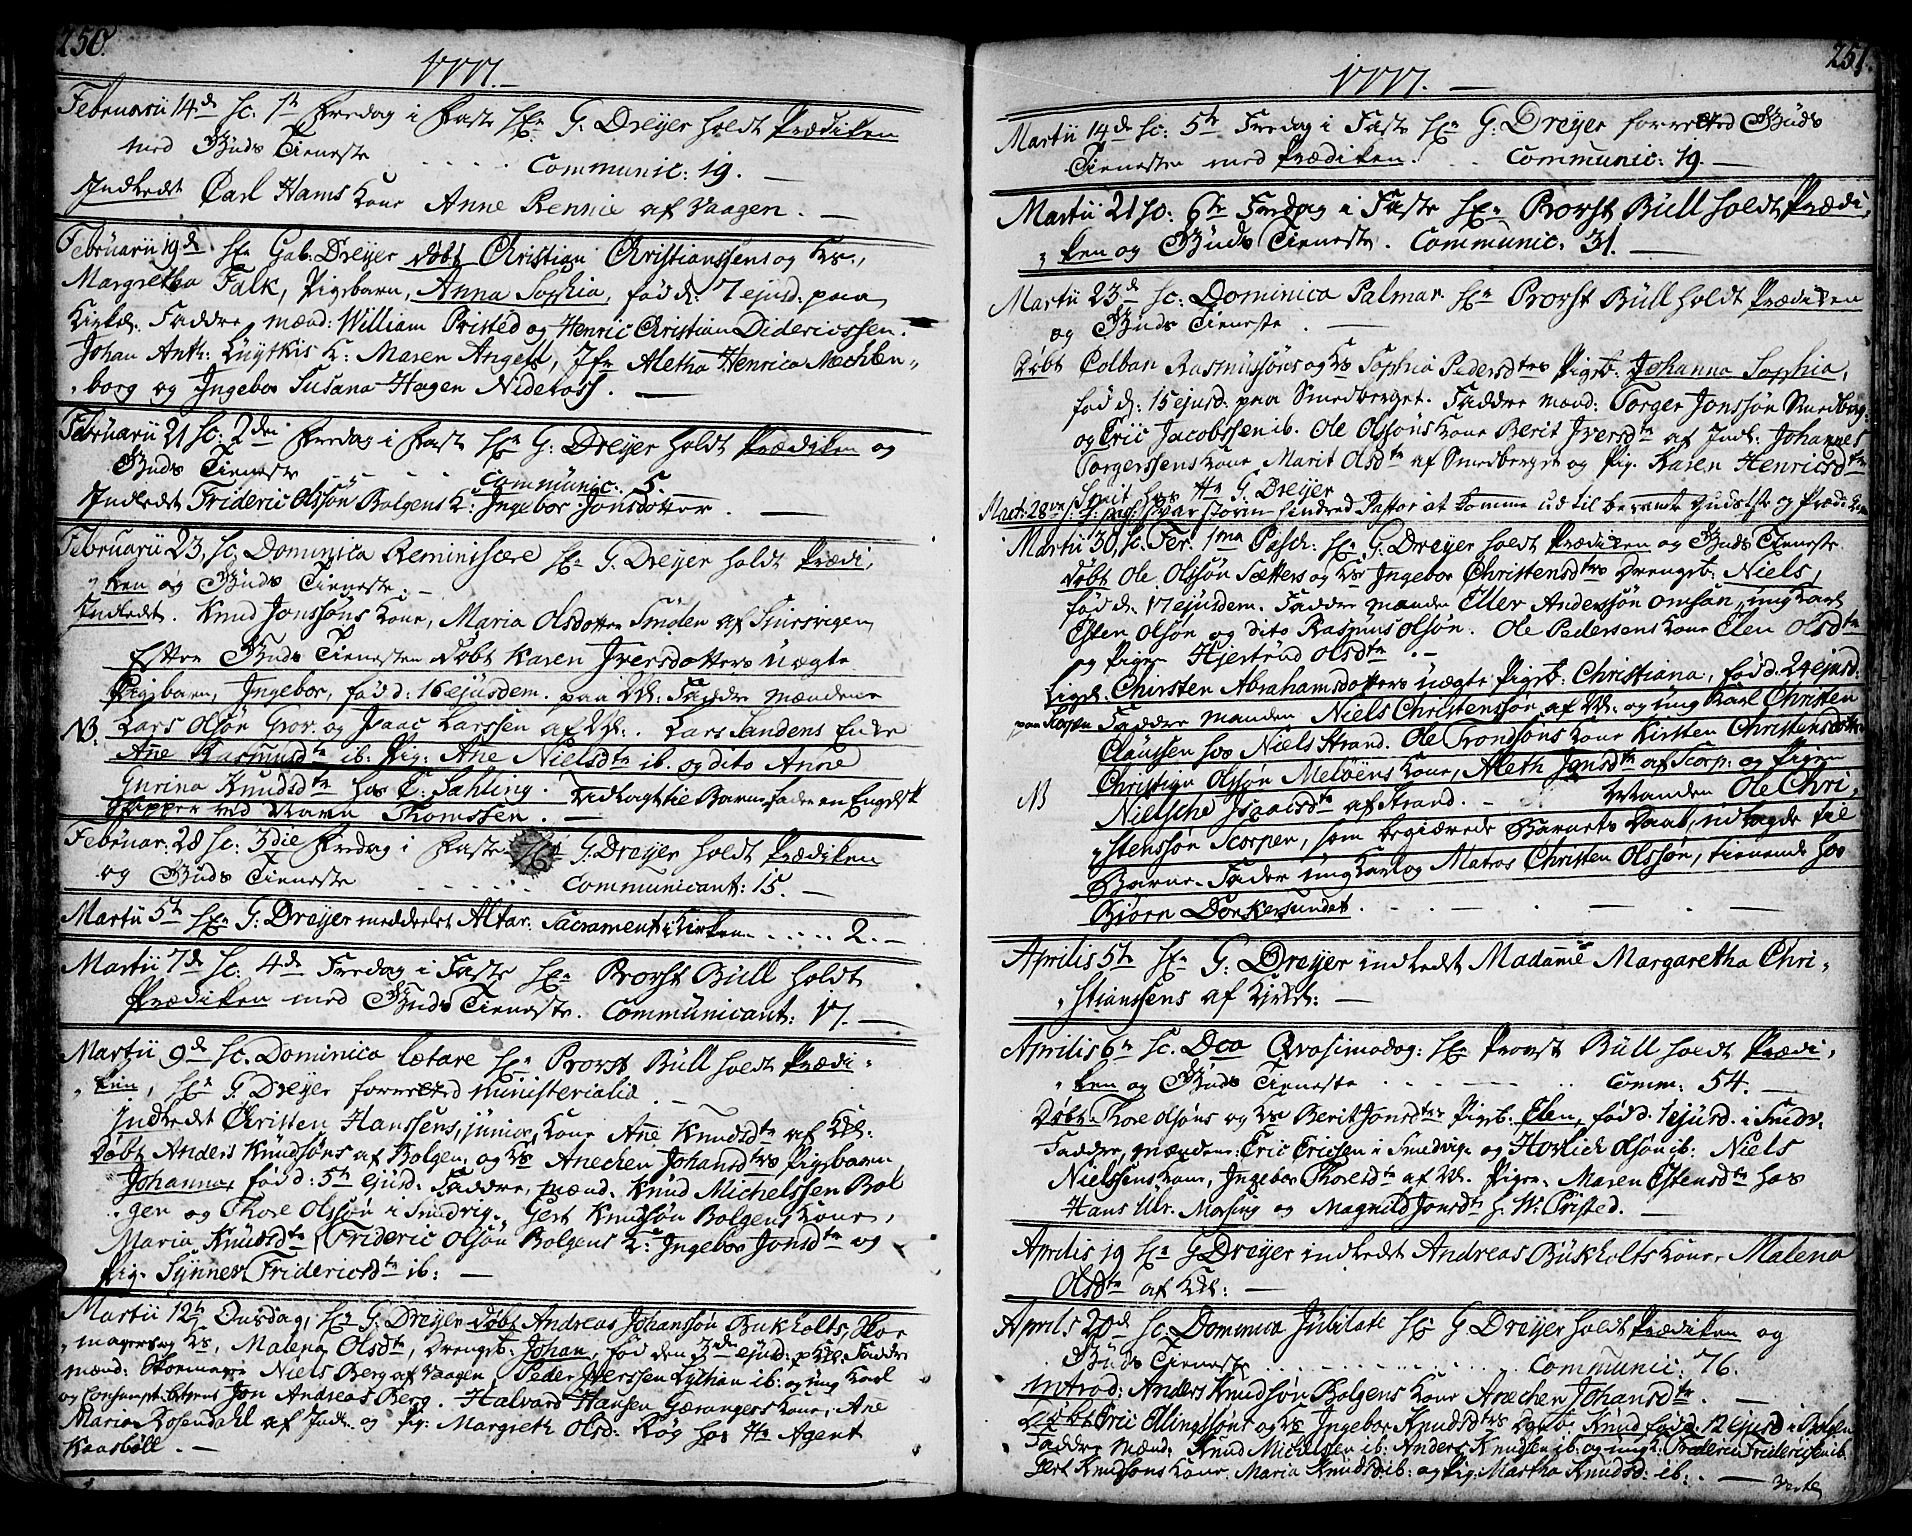 250.
1777.
Februarii 14d sc. 1te Fredag i Faste Hr G. Dreyer holdt Prædiken
med Guds Tieneste . . . . . Communic: 19. —
Indledt Carl Hams Kone Anne Rennie af Vaagen. —
Februarii 19d Hr Gab. Dreyer døbt Christian Christianssens og Hs
Margretha Falk, Pigebarn, Anna Sophia, fød d: 7 ejusd. paa
Kirkel. Faddre mænd: William Pristed og Henric Christian Didericssen.
Johan Anth: Luytkis K: Maren Angell, Jfr Aletha Henrica Mechlen-
borg og Ingebor Susana Hagen Nideross. —
Februarii 21 sc: 2den Fredag i Faste Hr G: Dreyer holdt Prædiken og
Guds Tieneste . . . Communic: 5.
Indledt Frideric Olssøn Bolgens K: Ingebor Jonsdotter. —
Februarii 23, sc. Dominica Reminiscere Hr G. Dreyer holdt Prædi-
ken og Guds Tieneste. —
Indledt. Knud Jonssøns Kone, Maria Olsdotter Smølen af Stursvigen
Efter Guds Tienesten døbt Karen Iversdotters uægte
Pigebarn, Ingebor, fød d: 16 ejusdem. paa Kl. Faddre mændene
NB. Lars Olsøn Grov. og Isaac Larssen af Kl. Lars Sandens Enke
Ane Rasmusdtr ib. Pig: Ane Nielsdtr ib. og dito Anne
Gurina Knudsdtr hos E: Sahling. Udlagt til Barne-Fader en Engelsk
Skipper ved Navn Thomssen. —
Februar: 28 sc: 3die Fredag i Faste Hr G. Dreyer holdt Prædiken
og Guds Tieneste . . . . . . Communicant: 15. —
Martii 5te Hr G: Dreyer meddeelet Altar: Sacrament i Kirken. . . . . . 2. —
Martii 7d sc. 4de Fredag i Faste Hr Provst Büll holdt
Prædiken med Guds Tieneste. Communicant: 17. —
Martii 9d sc. Dominica Lætare Hr Provst Büll holdt Prædi-
ken, Hr G. Dreyer forretted ministerialia. —
Indledt Christen Hanssens, junior, Kone Ane Knudsdtr af Kl:
Døbt Anders Knudsøns af Bolgen, og Hs Anechen Johansdtrs Pigebarn
Johanna, fød d: 5te ejusd. Faddre, mænd. Knud Michelssen Bol
gen og Thore Olssøn i Smevig. Gert Knudsøn Bolgens Kone,
Maria Knudsdtr, Frideric Olsøn Bolgens K: Ingebor Jonsdtr og
Pig. Synnev Fridericsdtr ib: —
Martii 12te Onsdag, Hr G. Dreyer døbt Andreas Johanssøn Bukholts, Skoe
magers og Hs, Malena Olsdtr, Drengeb: Johan, fød den 3de ejusd: p. Kl. Faddre
mænd: Skoemager Niels Berg af Vaagen Peder Iverssen Lythian ib: og ung Karl
og Consumpt.betient Jon Andreas Berg. Halvard Hansen Gærangers Kone, Ane
Maria Rosendahl af Indl. og Pig: Margreth Olsd: Røg hos Hr Agent
Kaasbøll. —
251.
1777. —
Martii 14de sc: 5te Fredag i Faste Hr G: Dreyer forretted Guds
Tieneste med Prædiken. . . Communic: 19. —
Martii 21 sc: 6te Fredag i Faste Hr Provst Büll holdt Prædi-
ken og Guds Tieneste. Communic: 31. —
Martii 23d sc: Dominica Palmar. Hr Provst Büll holdt Prædiken
og Guds Tieneste. —
Døbt Colban Rasmussøns og Hs Sophia Pedersdtrs Pigeb. Johanna Sophia,
fød d: 15 ejusd. paa Smedberget. Faddre mænd: Torger Jonssøn Smedberg:
og Eric Jacobssen ib. Ole Olsøns Kone Berit Iversdtr af Indl: Johannes
Torgerssens Kone Marit Olsdtr af Smedberget og Pig: Karen Henricsdtr
Mart: 28 hos Hr G. Dreyer
svar storm hindred Pastor at komme ud til berørte Gudstste og Prædiken
Martii 30, sc. Fer. 1ma Pasch: Hr G: Dreyer holdt Prædiken og Guds Tieneste
Døbt Ole Olssøn Sætters og Hs Ingebor Christensdtrs Drengeb: Niels,
fød d. 17 ejusdem. Faddre mændene Eller Anderssøn Omsan, ung Karl
Esten Olsøn og dito Rasmus Olsøn. Ole Pedersens Kone Elen Olsdtr
og Pigen Hjertrud Olsdtr. —
Liges. Chirsten Abrahamsdotters uægte Pigeb: Christiana, fød d. 24 ejusd:
paa Skorpen Faddre manden Niels Christenssøn af Kl. og ung Karl Christen
Claussen hos Niels Strand. Ole Trondsøns Kone Kirsten Christensdotter
Christian Olssøn Meløens Kone, Aleth Jonsdtr af Scorp: og Pigen
NB Nielsche Isaacsdtr af Strand. — Manden Ole Chri-
stenssøn Scorpen, som begiærede Barnets Daab, udlagde til
Barne-Fader ung Karl og Matros Christen Olssøn, tienende hos
Biørn Dorkersundet. —
Aprilis 5te Hr G: Dreyer indledt Madame Margaretha Chri-
stianssens af Kirkel: —
Aprilis 6te sc. Dca Qvasimodog: Hr Provst Büll holdt Prædi-
ken og Guds Tieneste . . . . . Comm: 54. —
Døbt Thore Olsøns og Hs Berit Jonsdtrs Pigeb. Elen, fød d. 1 ejusd. i Smev.
Faddre, mændene: Eric Ericsen i Smedvig. og Hovlich Olsøn ib: Niels
Nielssens Kone, Ingebor Thoresdtr af Kl. Pigen: Maren Estensdtr hos
Hans Ulr. Morsing og Magnild Jonsdtr h. W. Pristed. —
Aprilis 19 Hr G Dreyer indledt Andreas Bukholts Kone, Malena
Olsdtr af Kl: —
Aprils 20d sc. Dominica Jubilate Hr G Dreyer holdt Prædiken og
Guds Tieneste . . . . . . . . Communic: 76.
Introd: Anders Knudsøn Bolgens Kone Anechen Johansdtr. —
Døbt Eric Ellingssøns og Hs Ingebor Knudsdtrs Dgeb: Knud fød d. 12 ejusd i Bolgen
Faddre mænd: Knud Michelssen ib: Anders Knudsen ib: og ung K: Frederic Fridericsen ib.
Gert Knudsøns Kone, Maria Knudsd: ib: og Pig: Martha Knudsd: ib: —
verte